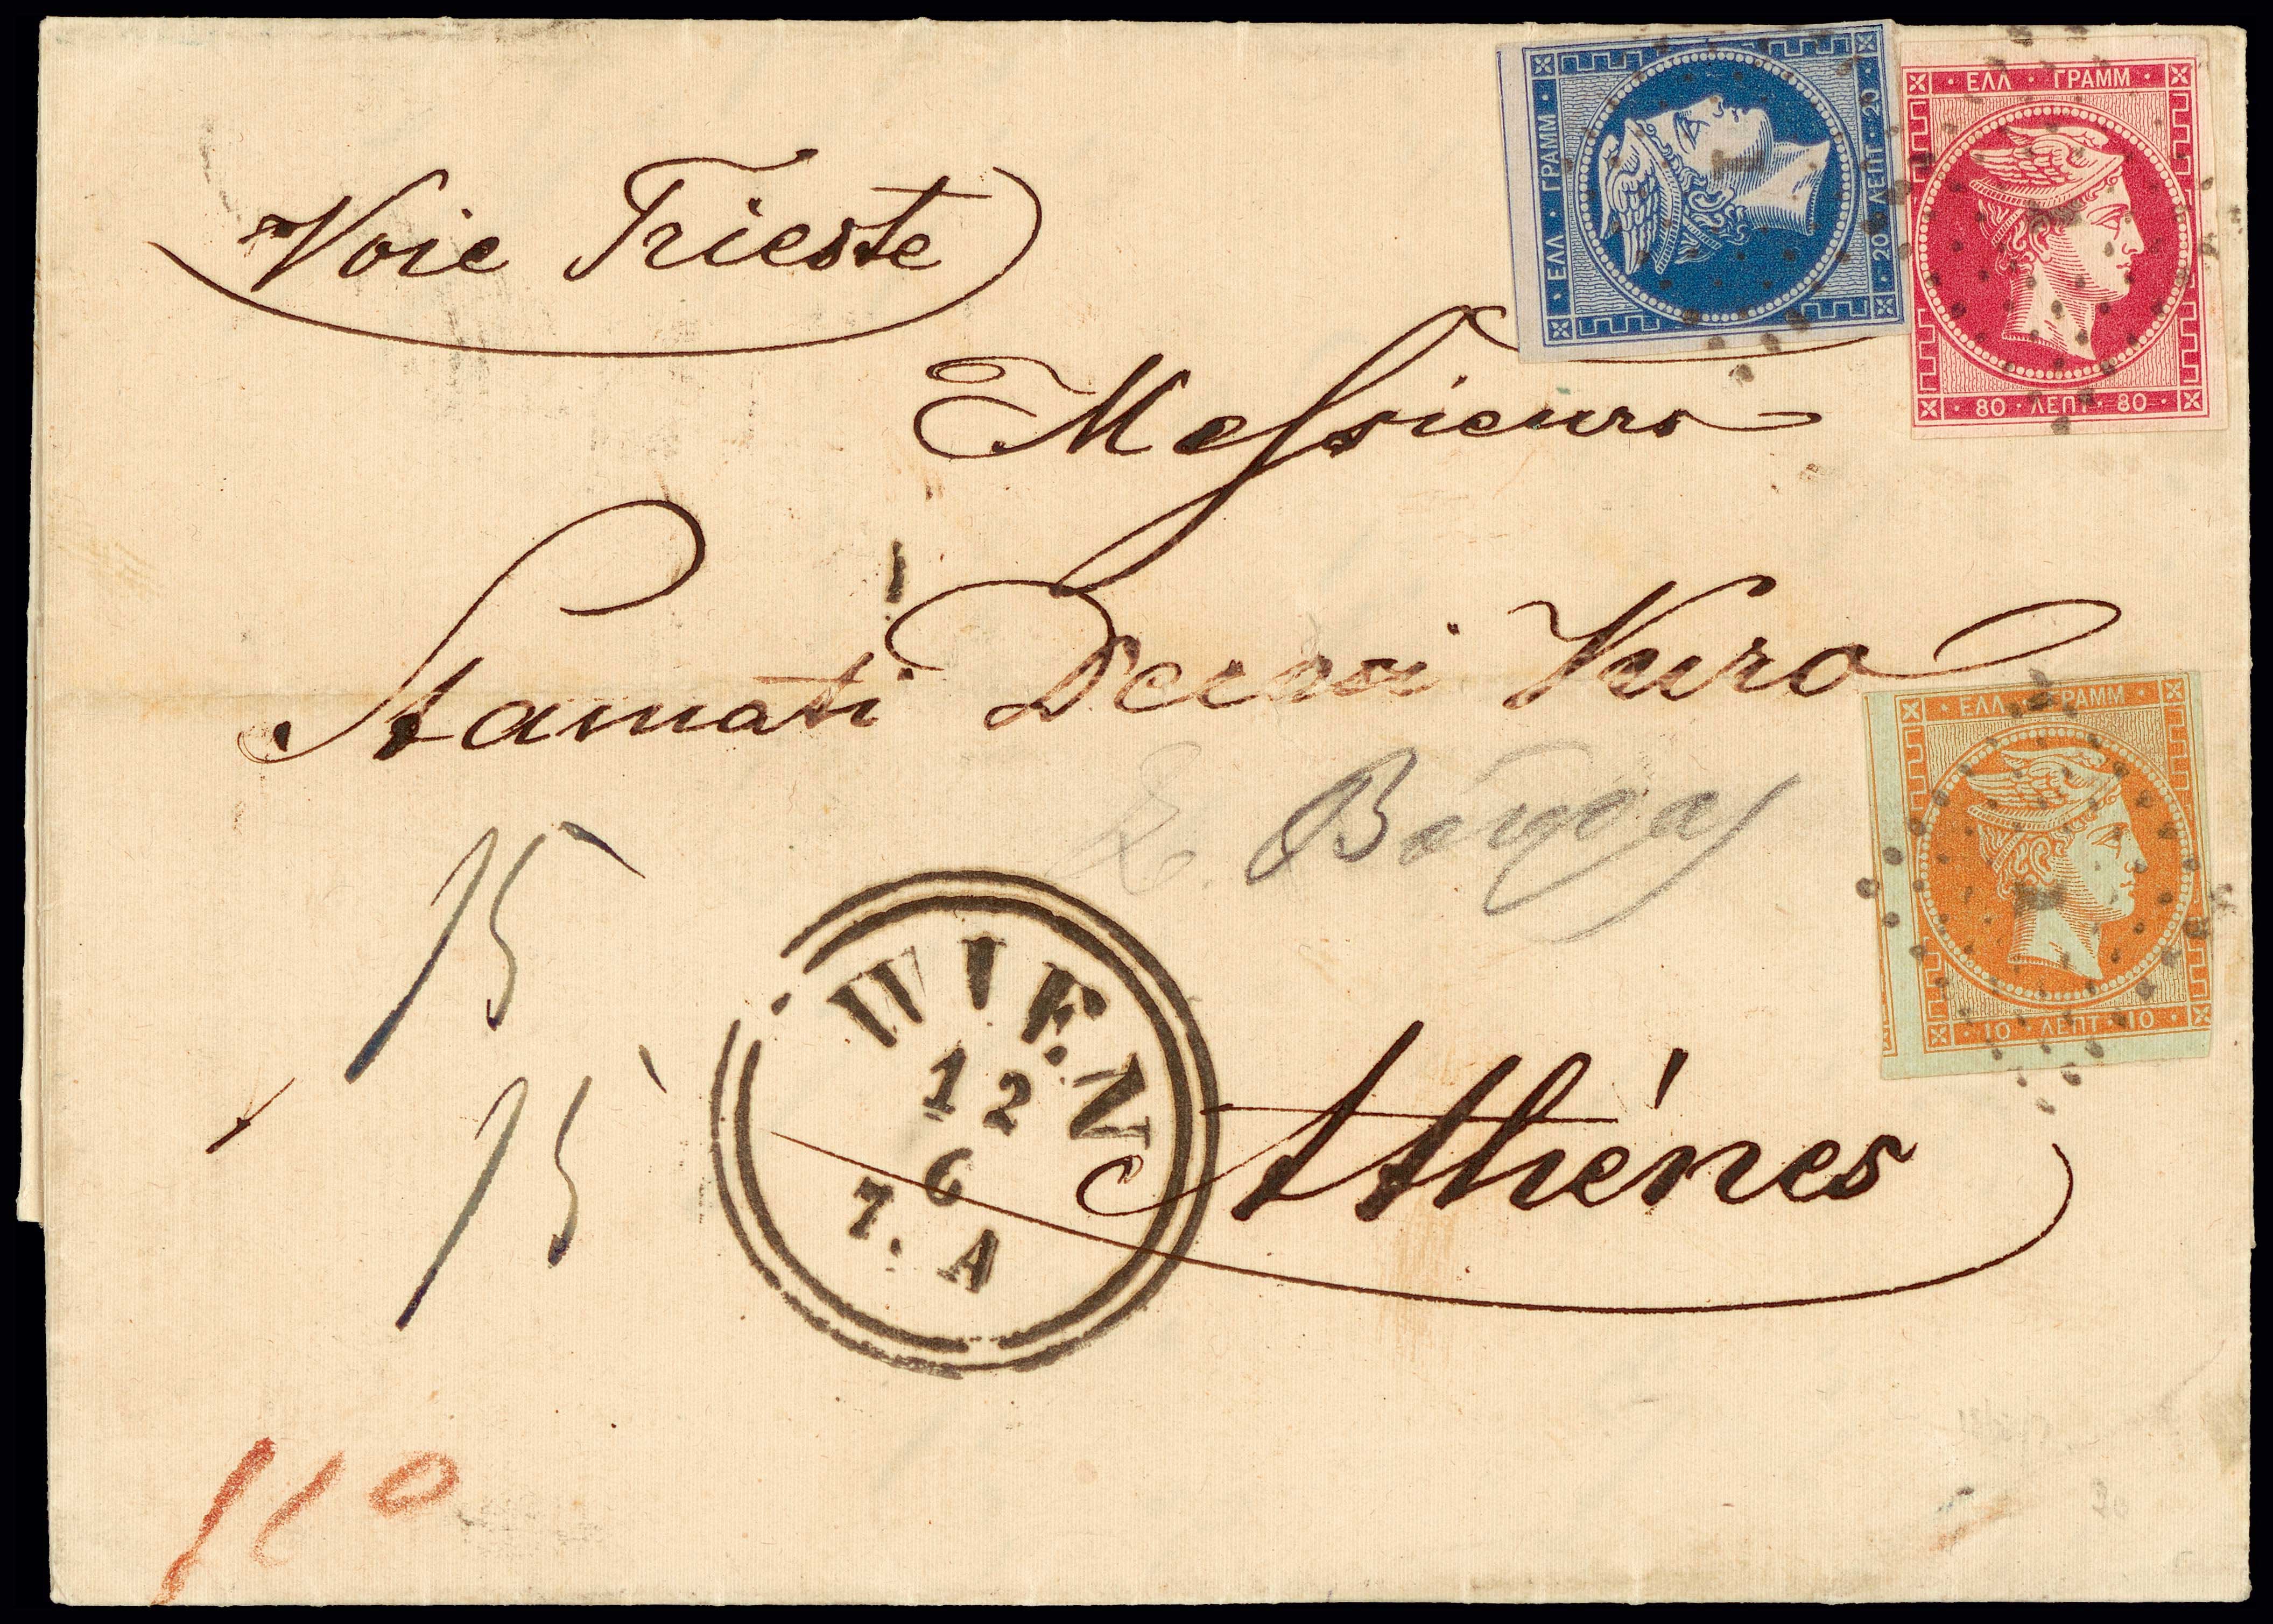 ΕΛΛ · ΓΡΑΜΜ
20 · ΛΕΠΤ · 20
ΕΛΛ · ΓΡΑΜΜ
80 · ΛΕΠΤ · 80
Voie Trieste
Messieurs
Stamati Decosi Vuro
ΕΛΛ · ΓΡΑΜΜ
10 · ΛΕΠΤ · 10
15
15
WIEN
12
6
7. A
Athénes
110